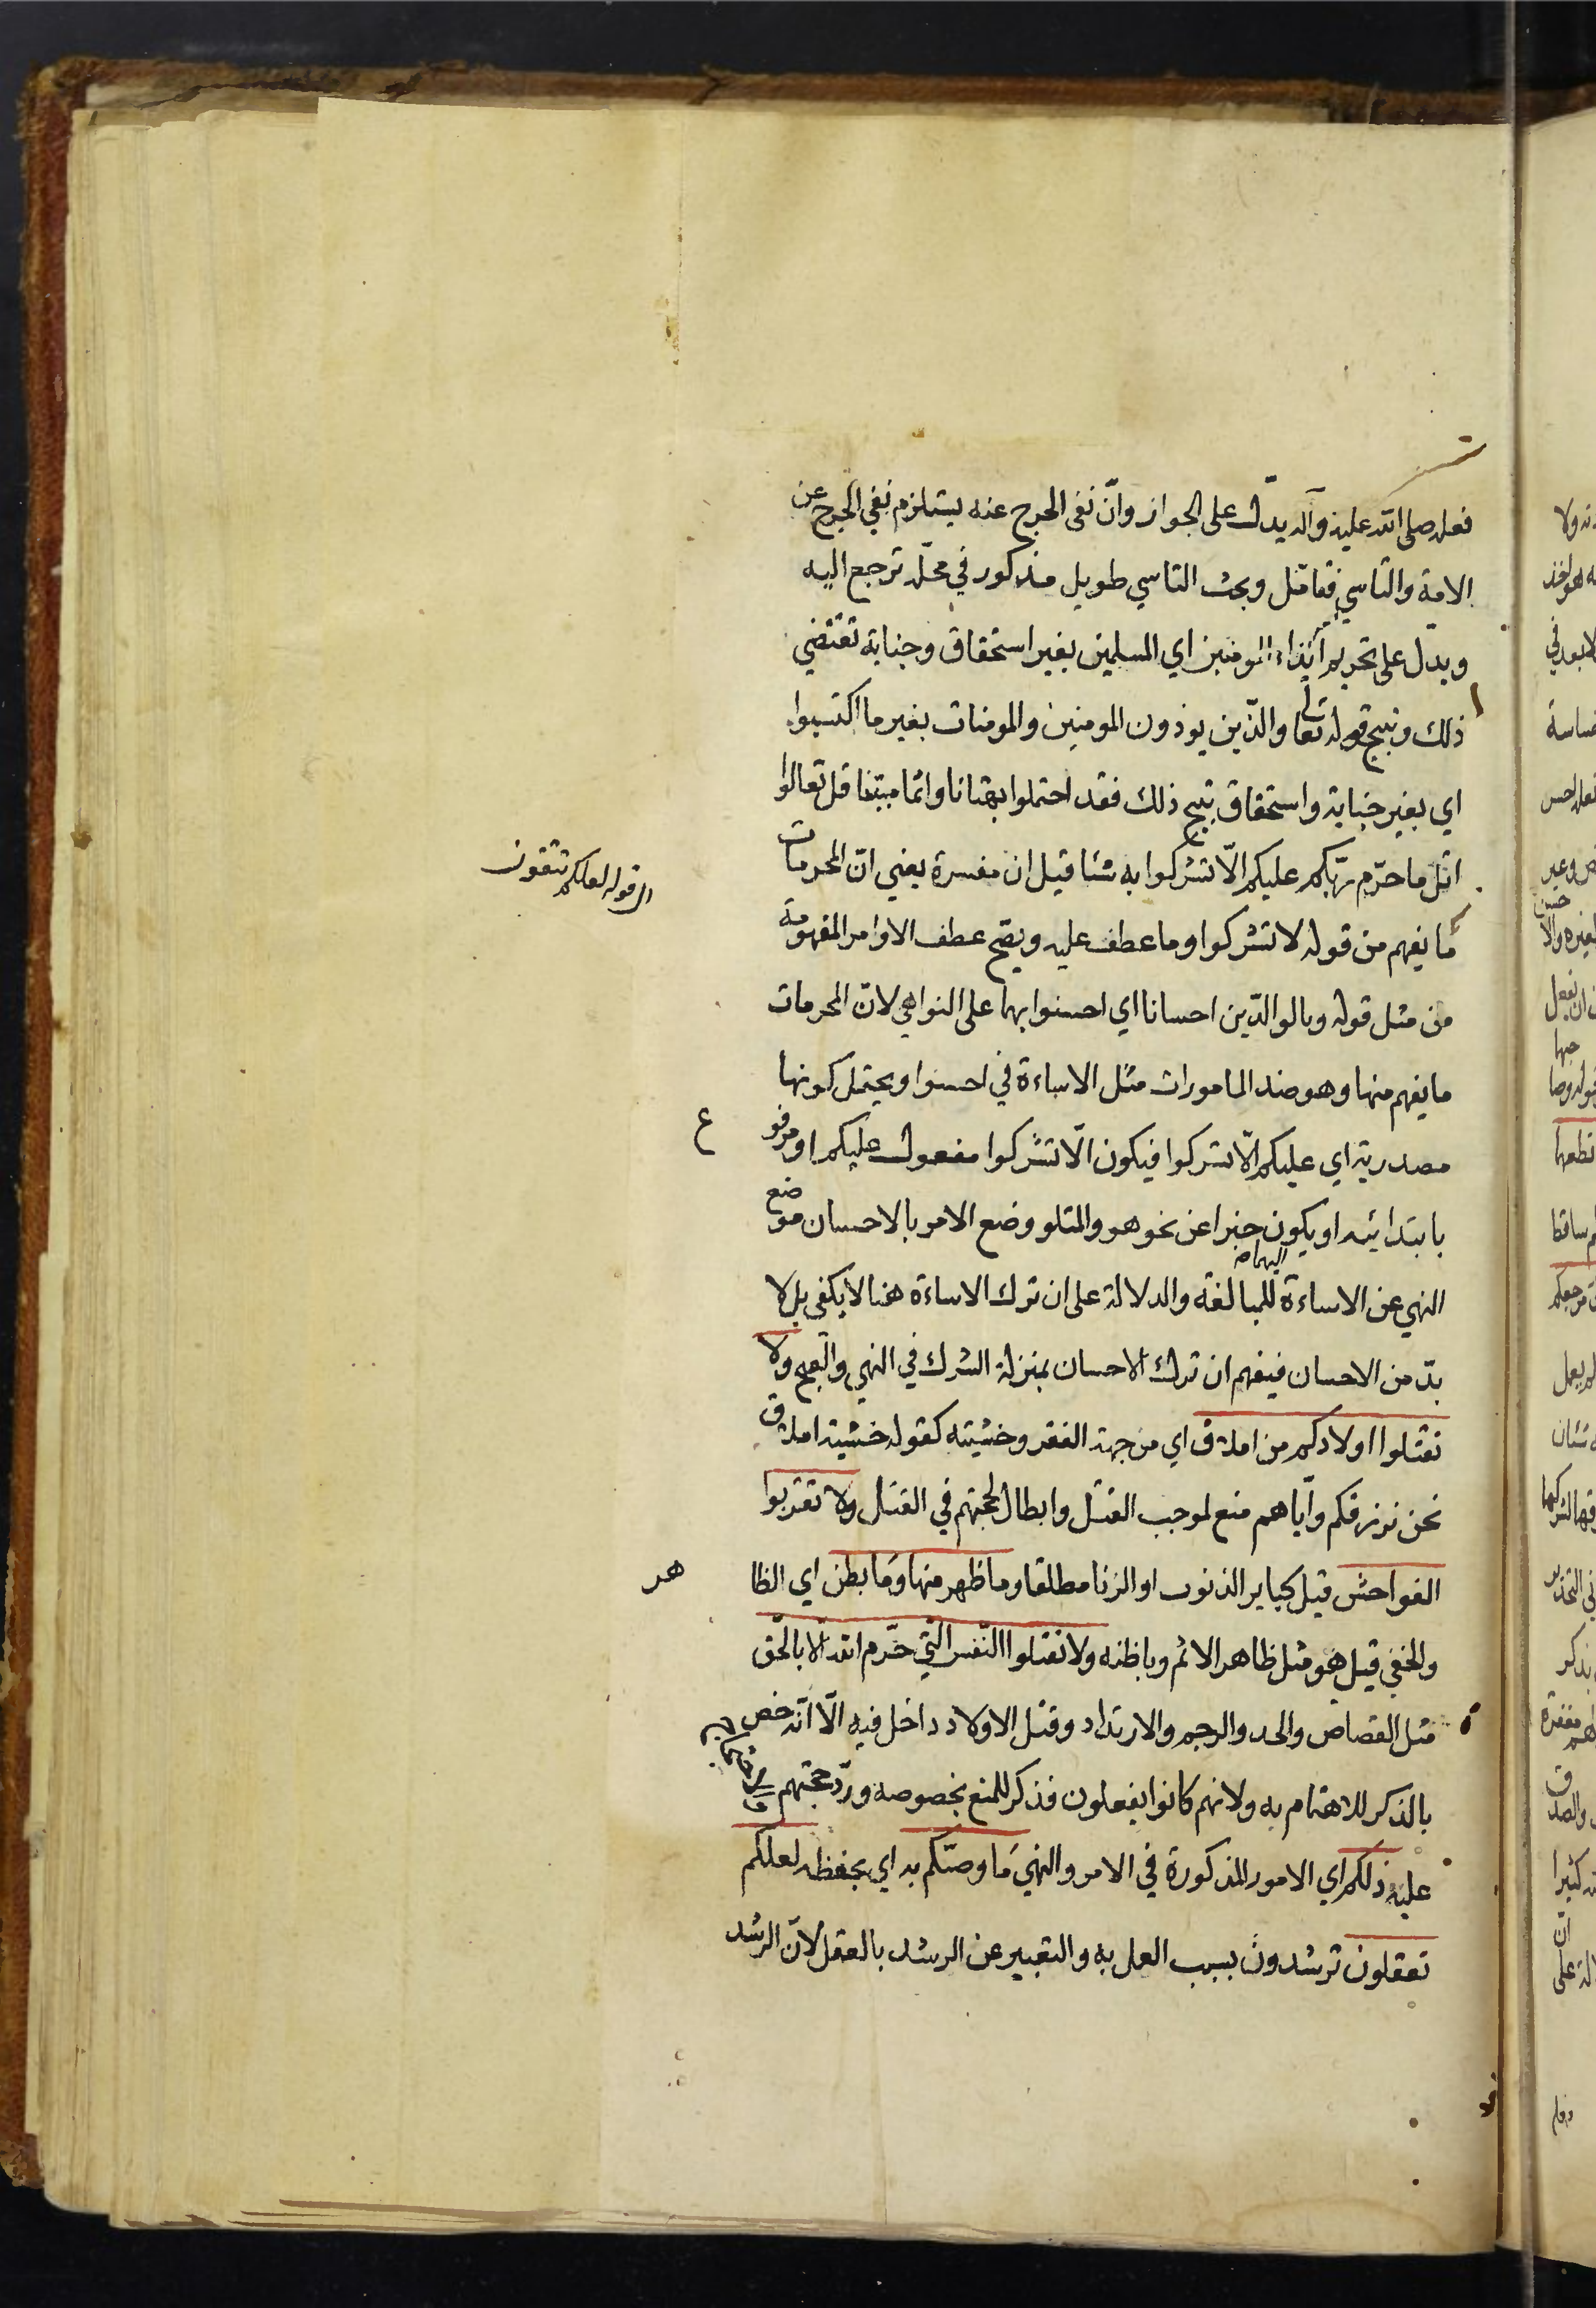 فعله صلى الله عليه وآله يدلّ على الجواز وانّ نفى الحرج عنه يستلزم نفي الحرج عن
الامة والتاسي فتامّل وبحث التاسي طويل مذكور في محلّه ترجع اليه
ويدلّ على تحريم ايذاء المومنين اي المسلمين بغير استحقاق وجناية تقتضي
ذلك ونبيح قوله تعالى والذّين يوذون المومنين والمومنات بغير ما اكتسبوا
اي بغير جناية واستحقاق تبيح ذلك فقد احتملوا بهتانا واثما مبينا قل تعالوا
اتل ما حرّم ربّكم عليكم الّا تشركوا به شئا قيل ان مفسرة يعني انّ المحرمات
الى قوله لعلكم تتقون
ما يفهم من قوله لا تشركوا وما عطف عليه ويصّح عطف الاوامر المفهومة
من مثل قوله وبالوالدّين احسانا اي احسنوا بهما على النواهي لانّ المحرمات
ما يفهم منها وهو ضد المامورات مثل الاساءة في احسنوا ويحتمل كونها
مصدرية اي عليكم الّا تشركوا فيكون الّا تشركوا مفعول عليكم او مرفوع
بابتدائيه او يكون خبرا عن نحو هو والمتلو وضع الامر بالاحسان موضع
النهي عن الاساءة اليهما للمبالغة والدلالة على ان ترك الاساءة هنا لا يكفى بل لا
بدّ من الاحسان فيفهم ان ترك الاحسان بمنزلة الشرك في النهي والقبح ولا
تقتلوا اولادكم من املاق اي من جهة الفقر وخشيته كقوله خشية املاق
نحن نرزقكم وايّاهم منع لموجب القتل وابطال لحجتهم في القتل ولا تقربوا
الفواحش قيل كباير الذنوب او الزنا مطلقا وما ظهر منها وما بطن اي الظاهر
والخفي قيل هو مثل ظاهر الاثم وباطنه ولا تقتلوا النّفس الّتي حرّم الله الّا بالحّق
مثل القصاص والحد والرجم والارتداد وقتل الاولاد داخل فيه الّا انّه خص
بالذكر للاهتمام به ولانهم كانوا يفعلون فذكر للمنع بخصوصه وردّ حجّتهم
عليه ذلكم اي الامور المذكورة في الامر والنهي ما وصّكم به اي بحفظه لعلكم
تعقلون ترشدون بسبب العمل به والتعبير عن الرشد بالعقل لانّ الرشد